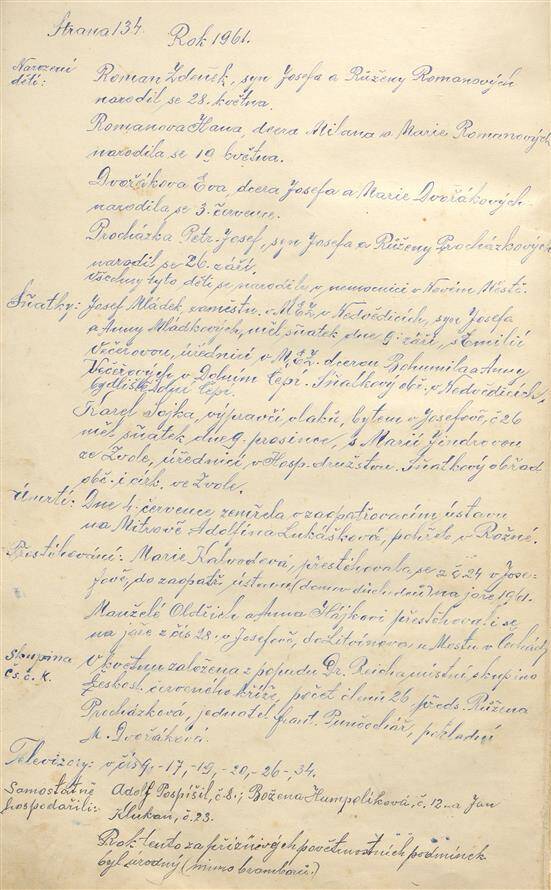 Strana 134. Rok 1961.
Narození
děti:
Roman Zdeněk, syn Josefa a Růženy Romanových
narodil se 28. května.
Romanova Hana, dcera Milana a Marie Romanových
narodila se 19 května.
Dvořákova Eva, dcera Josefa a Marie Dvořákových
narodila se 3. července.
Procházka Petr Josef, syn Josefa a Růženy Procházkových
narodil se 26. září.
Všechny tyto děti se narodily v nemocnici v Novém Městě.
Sňatky: Josef Mládek, zaměstn. v MEZ v Nedvědicích, syn Josefa
a Anny Mládkových, měl sňatek dne 9. září, s Emilií
Večeřovou, úřednicí v MEZ. dcerou Bohumila a Anny
Večeřových v Dolním Čepí. Sňatkový obř. v Nedvědicích,
bydliště Dolní Čepí.
Karel Sojka, výpravčí vlaků, bytem v Josefově, č 26
měl sňatek dne 9. prosince, s Marií Jindrovou
ze Zvole, úřednicí v Hosp. družstvu. Sňatkový obřad
obč. i círk. ve Zvole.
Úmrtí: Dne 4. července zemřela v zaopatřovacím ústavu
na Mitrově Adolfína Lukášková, pohřeb v Rožné.
Přestěhování: Marie Kalvodová, přestěhovala se z č. 24 v Jose-
fově, do zaopatř. ústavu (domov důch-dců) na jaře 1961.
Manželé Oldřich a Anna Hájkovi přestěhovali se
na jaře z čís 28. v Josefově, do Litvínova u Mostu v Čechách
Skupina
Čs. č. k.
V květnu založena z popudu Dr. Reicha místní skupina
Českosl. červeného kříže, počet členů 26. předs. Růžena
Procházková, jednatel frant. Punčochář, pokladní
M. Dvořáková.
Televizory: v čís 9,-17,-19,-20,-26-,34.
Samostatně
hospodařili:
Adolf Pospíšil, č 8., Božena Humpolíková, č. 12. a Jan
Klukan, č. 23.
Rok tento za příznivých povětrnostních podmínek
byl úrodný (mimo bramborů.)